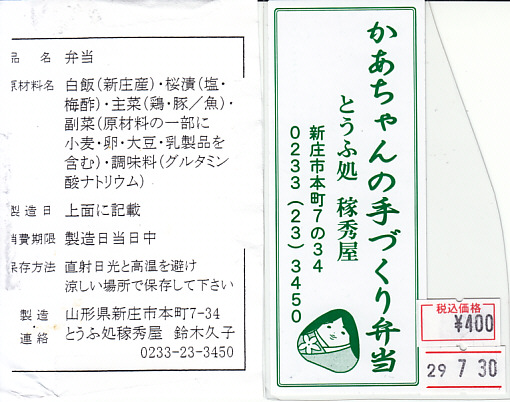 品　名　弁当
原材料名　白飯(新庄産)・桜漬(塩・
梅酢)・主菜(鶏・豚／魚)・
副菜(原材料の一部に
小麦・卵・大豆・乳製品を
含む)・調味料(グルタミン
酸ナトリウム)
製造日　上面に記載
消費期限　製造日当日中
保存方法　直射日光と高温を避け
涼しい場所で保存して下さい
製造　山形県新庄市本町7-34
連絡　とうふ処稼秀屋　鈴木久子
0233-23-3450
かあちゃんの手づくり弁当
とうふ処 稼秀屋
新庄市本町7の34
0233(23)3450
税込価格
¥400
29 7 30